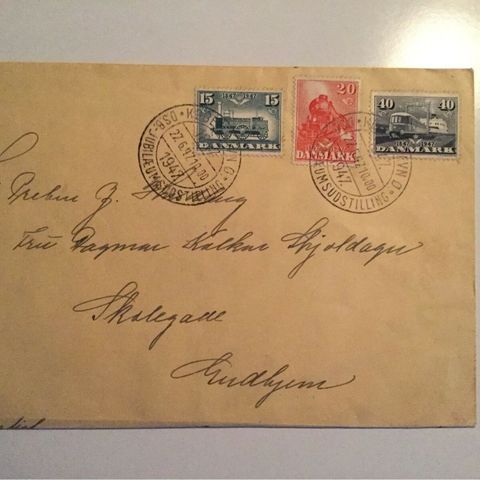 15 1847 1947 15
DANMARK
20
DANMARK
40 40
1847 1947
DANMARK
DSB-JUBILÆUMSUDSTILLING
22.6.47.10.00
1947
JUBILÆUMSUDSTILLING
1947
Fru Dagmar Kalkar Skjoldager
Skolegade
Gudhjem